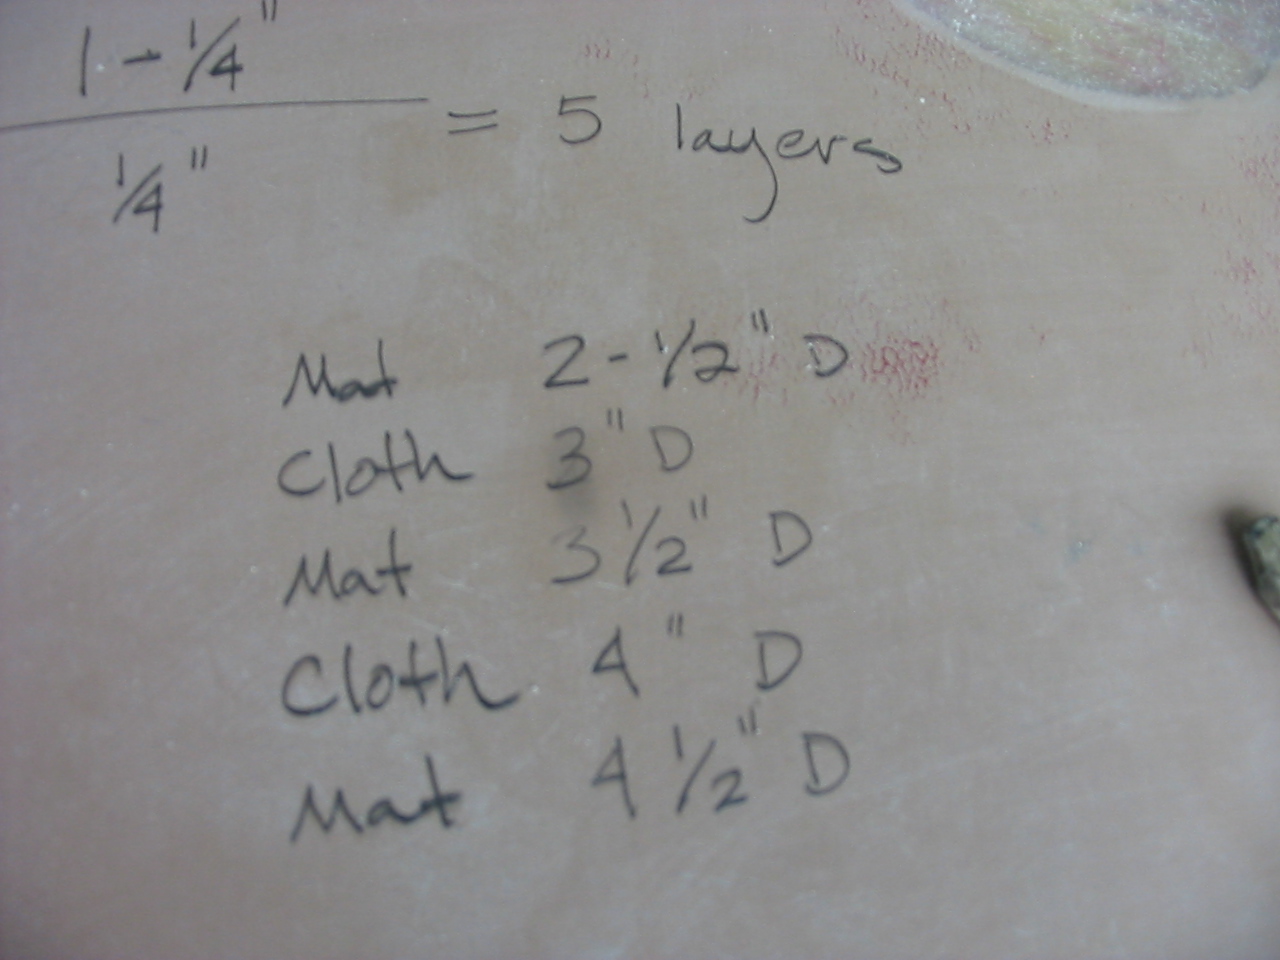 1-1/4"
= 5 layers
1/4"
Mat 2-1/2" D
Cloth 3" D
Mat 3 1/2" D
Cloth 4" D
Mat 4 1/2" D